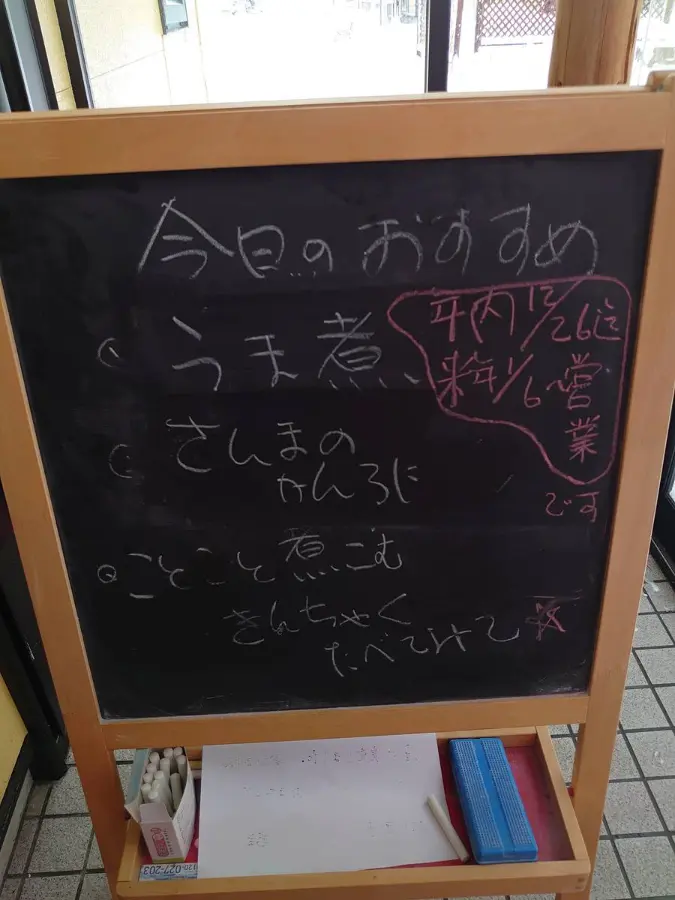 今日のおすすめ
うま煮
さんまの
かんろに
ことこと煮こむ
きんちゃく
たべてみて
年内12/26迄
来年1/6〜営
業
です